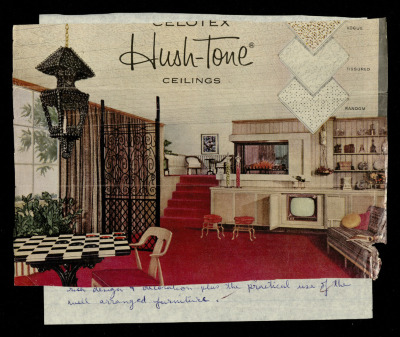 CELOTEX
Hush-Tone®
CEILINGS
VOGUE
FISSURED
RANDOM
design & decoration plus the practical use of the
well arranged furniture.